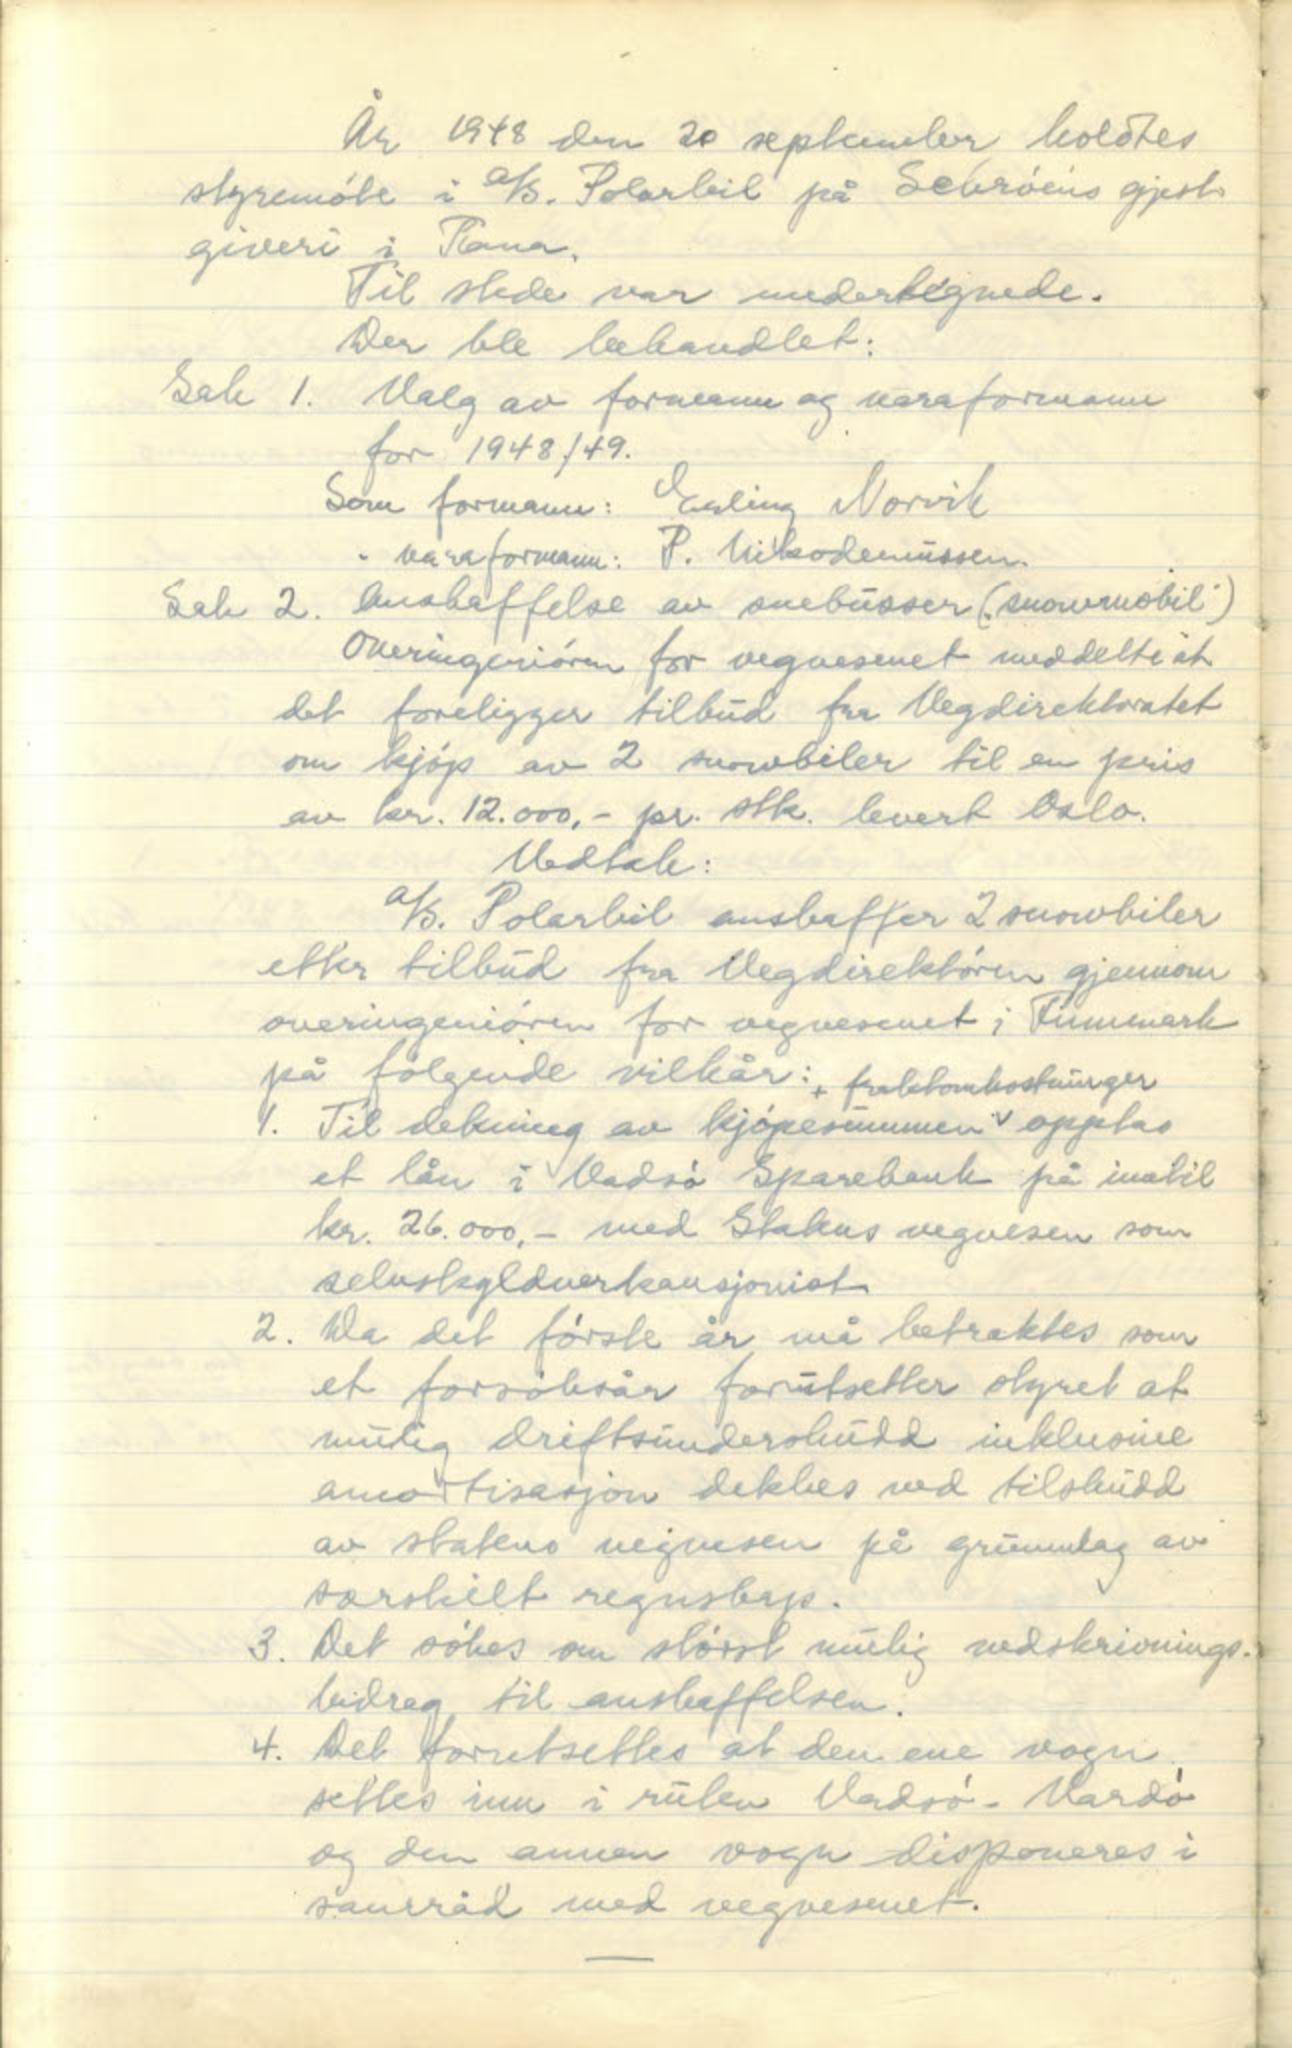 År 1948 den 20 september holdtes
styremöte i A/S. Polarbil på Schröens gjest-
giveri i Tana.
Til stede var undertegnede.
Der ble behandlet:
Sak 1. Valg av formann og varaformann
for 1948/49.
Som formann: Erling Norvik
" varaformann: P. Nikodemussen.
Sak 2. Anskaffelse av snebusser ("snowmobil")
Overingeniören for vegvesenet meddelte at
det foreligger tilbud fra Vegdirektoratet
om kjöp av 2 snowbiler til en pris
av kr. 12.000,- pr. stk. levert Oslo.
Vedtak:
A/S. Polarbil anskaffer 2 snowbiler
etter tilbud fra Vegdirektören gjennom
overingeniören for vegvesenet i Finnmark
på fölgende vilkår:
+ fraktomkostninger
1. Til dekning av kjöpesummen v opptas
et lån i Vadsö Sparebank på inntil
kr. 26.000,- med Statens vegvesen som
selvskyldnerkausjonist
2. Da det förste år må betraktes som
et forsöksår forutsetter styret at
mulig driftsunderskudd inklusive
amortisasjon dekkes ved tilskudd
av statens vegvesen på grunnlag av
særskilt regnskap.
3. Det sökes om störst mulig nedskrivnings-
bidrag til anskaffelsen.
4. Det forutsettes at den ene vogn
settes inn i ruten Vadsö - Vardö
og den annen vogn disponeres i
samråd med vegvesenet.